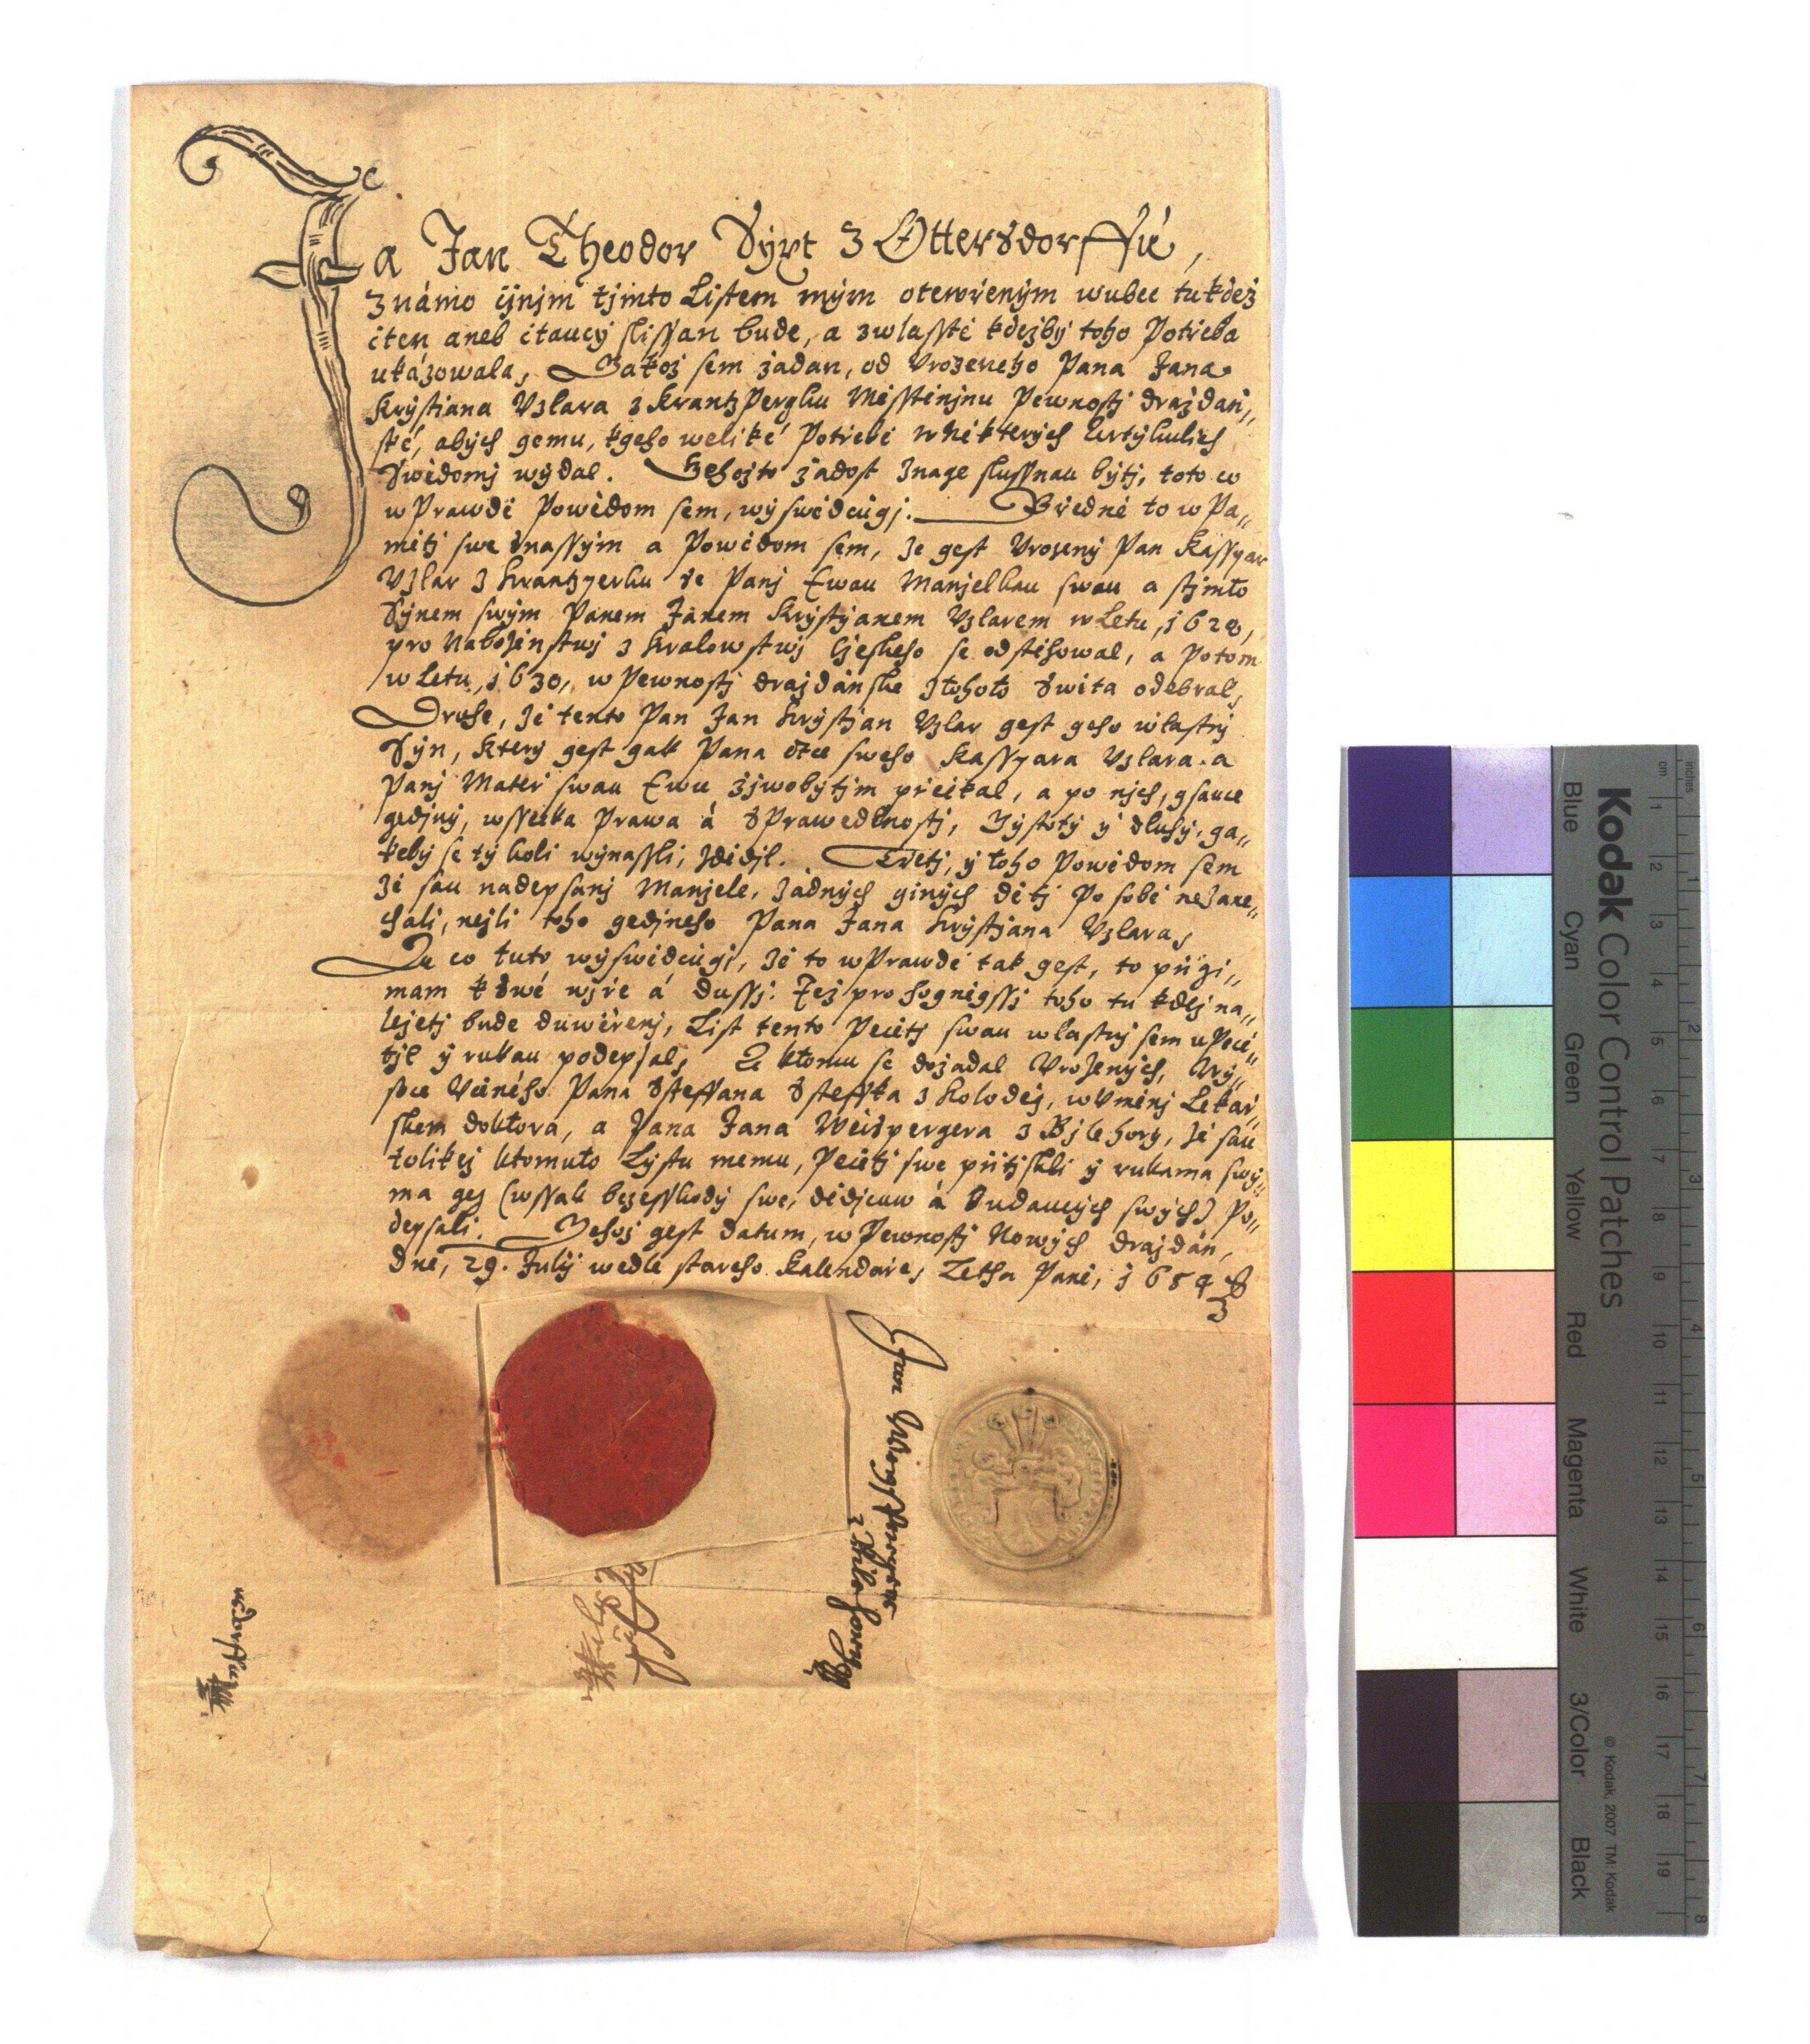 Ja Jan Theodor Syxt z Ottersdorffu,
známo cinjm tjmto Listem mým otewřeným wubec tu kdež
čten aneb čtaucý slissan bude, a zwlasstě kdežby toho Potřeba
ukázowala, Jakož sem žadan, od Urozeneho Pana Jana
Krystiana Uzlara z KrantzPerghu Měsstěnjnu Pewnostj draždan,,
ské, abych gemu, kgeho weliké Potřebě w některých Artykulich
Swědomj wydal. Gehožto žadost Znage slussnau býtj, toto co
w Prawdě Powědom sem, wyswědčugj. Předně to w Pa,,
mětj swe wnassym a Powědom sem, že gest Urozený Pan Kassyar
Uzlar z Krantzperku se Panj Ewau Manželkau swau a stjmto
Synem swým Panem Janem Krystyanem Uzlarem w Letu, 1628,
pro Nabožěnstwj z Kralowstwj Cžeskeho se odstěhowal, a potom
w Letu, 1630, w Pewnostj draždánske z tohoto Swěta odebral,
Druhe, že tento Pan Jan Krystjan Uzlar gest geho wlastnj
Syn, Který gest gak Pana otce sweho Kassyara Uzlara a
Panj Mateř swau Ewu žjwobytjm přečkal, a po njch, gsauce
gedjný, wssecka Prawa á Sprawedlnostj, Gystoty y dluhy, ga,,
keby se ty koli wynassli, Zdědjl. Třetj, y toho Powědom sem
že sau nadepsanj Manžele, žádných giných dětj Po sobě neZane,,
chali, nežli toho gedjneho Pana Jana Krystjana Uzlara,
Za co tuto wyswědčugi, že to w Prawdě tak gest, to přigi,,
mam k Swé wjře á dussj. Jež pro hogněgssj toho tu kdež na,,
ležetj bude duwěřenj, List tento Pečetj swau wlastnj sem uPeče,,
tjl y rukau podepsal, A ktomu se dožadal Urozených, Wy,,
soce Učeného Pana Steffana Steffka z Koloděg, w Uměnj Lekař,,
skem doktora, a Pana Jana Weispergera z Bjlehory, že sau
tolikež ktomuto Lystu memu, Pečetj swe přitjskli y rukama swy,,
ma geg (wssak bezesskody swe, dědjcuw á Budaucých swých) Po,,
depsali. Gehož gest datum, w Pewnostj Nowých draždan,
dne, 29. Julij wedlé stareho Kalendaře, Letha Paně, 1654
Jan Weissperger
z Bile Hory
rsdorffu
Blue Cyan Green Yellow Red Magenta White 3/Color Black
Kodak Color Control Patches
© Kodak, 2007 TM: Kodak
cm 1 2 3 4 5 6 7 8 9 10 11 12 13 14 15 16 17 18 19
inches 1 2 3 4 5 6 7 8